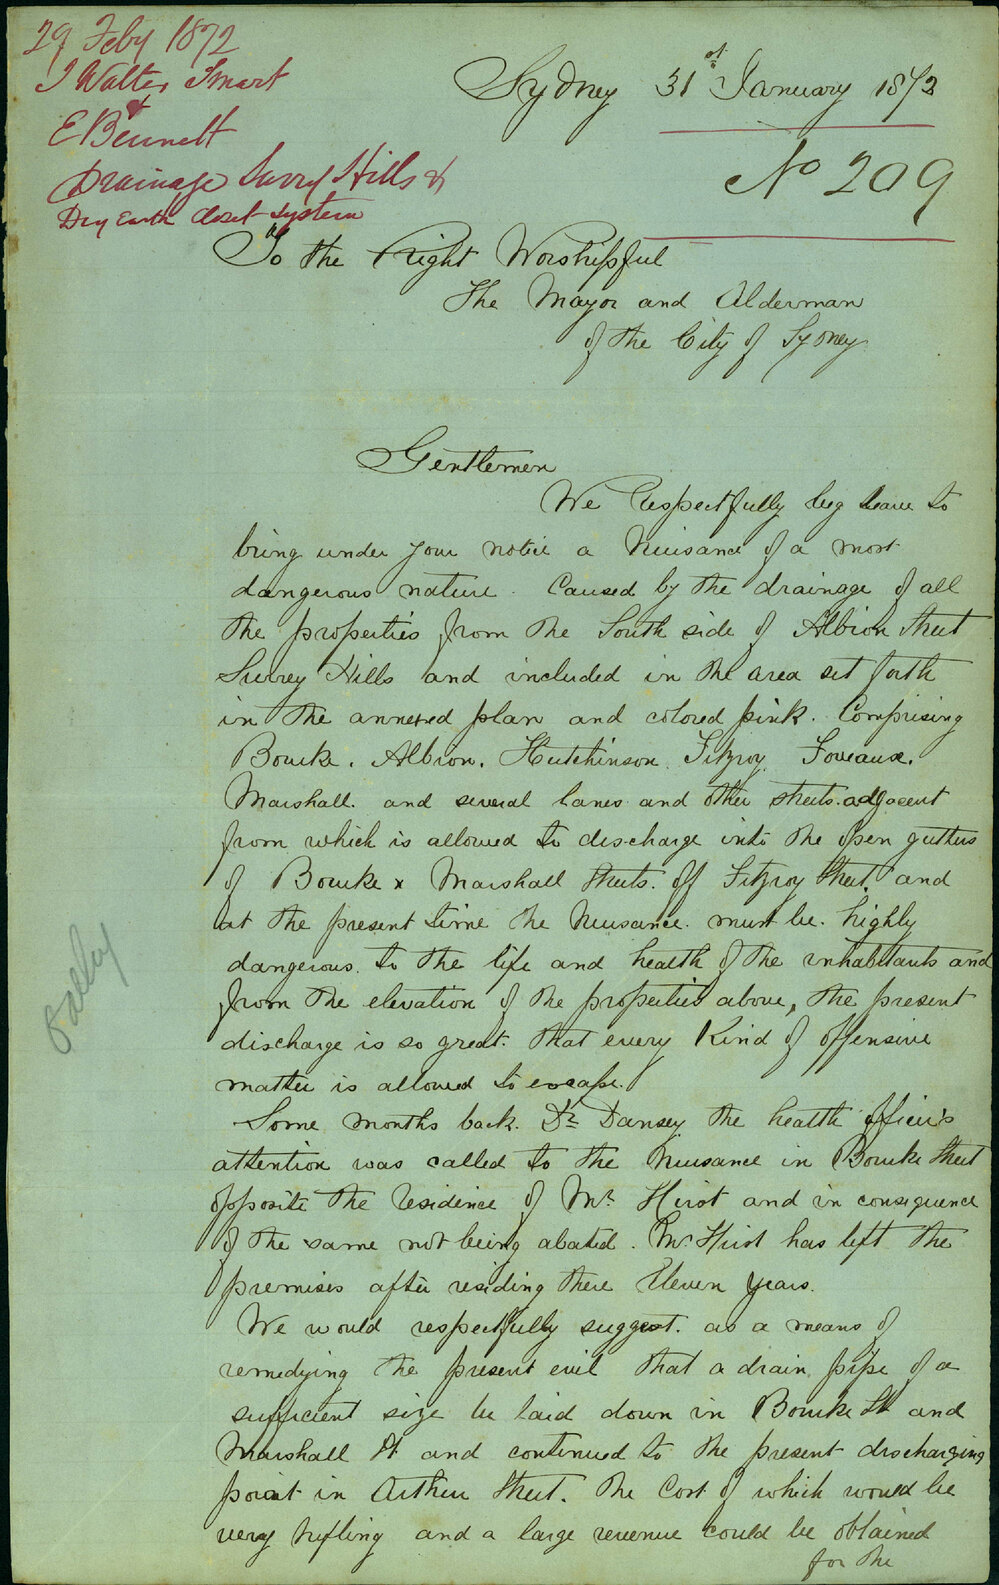 29 Feby 1872
J Walter Smart
&
E Bennett
Drainage Surry Hills &
Dry Earth Closet System
Sydney 31st January 1872
No 209
To the Right Worshipful
The Mayor and Alderman
of the City of Sydney
Gentlemen
We Respectfully beg leave to
bring under your notice a Nuisance of a most
dangerous nature. Caused by the drainage of all
the properties from the South side of Albion Street
Surrey Hills and included in the area set forth
in the annexed plan and colored pink. Comprising
Bourke. Albion. Hutchinson. Fitzroy. Foveaux.
Marshall. and several lanes and other streets. adjacent
from which is allowed to discharge into the open gutters
of Bourke & Marshall Streets. off Fitzroy Street. and
at the present time the Nuisance. must be. highly
dangerous. to the life and health of the inhabitants and
from the elevation of the properties above, the present
discharge is so great. that every Kind of offensive
matter is allowed to escape.
Some months back. Dr Dansey the health officer's
attention was called to the Nuisance in Bourke Street
opposite the residence of Mr. Hirst and in consequence
of the same not being abated. Mr Hirst has left the
premises after residing there Eleven years.
We would respectfully suggest. as a means of
remedying the present evil that a drain pipe of a
sufficient size be laid down in Bourke St and
Marshall St and continued to the present discharging
point in Arthur Street. The Cost of which would be
very trifling and a large revenue could be obtained
for the